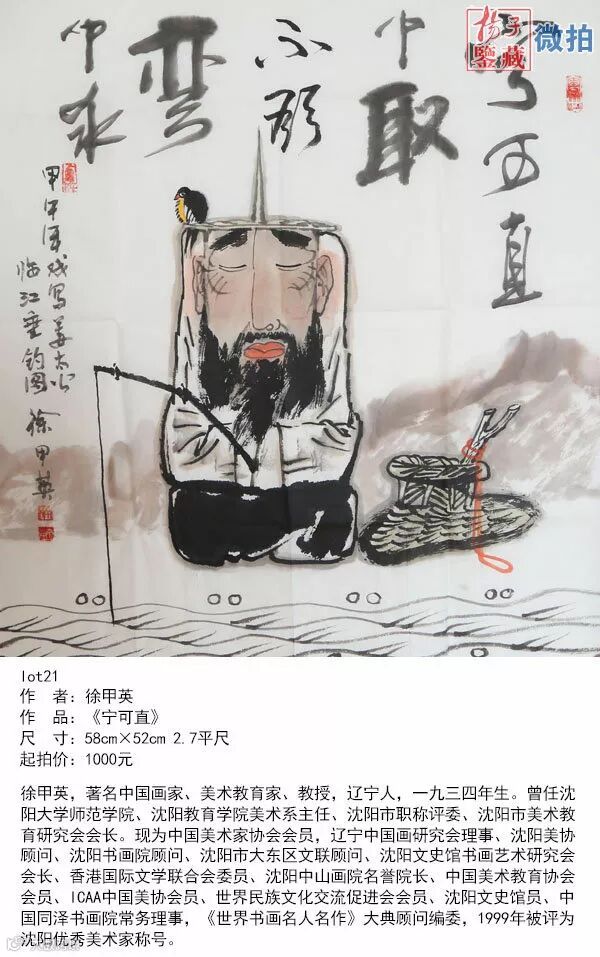 杨子
鉴藏
微拍
宁可直
中取
不欲
弯
中求
甲午年戏写姜太公
临江垂钓图 徐甲英
lot21
作 者：徐甲英
作 品：《宁可直》
尺 寸：58cm×52cm 2.7平尺
起拍价：1000元
徐甲英，著名中国画家、美术教育家、教授，辽宁人，一九三四年生。曾任沈
阳大学师范学院、沈阳教育学院美术系主任、沈阳市职称评委、沈阳市美术教
育研究会会长。现为中国美术家协会会员，辽宁中国画研究会理事、沈阳美协
顾问、沈阳书画院顾问、沈阳市大东区文联顾问、沈阳文史馆书画艺术研究会
会长、香港国际文学联合会委员、沈阳中山画院名誉院长、中国美术教育协会
会员、ICAA中国美协会员、世界民族文化交流促进会会员、沈阳文史馆员、中
国同泽书画院常务理事，《世界书画名人名作》大典顾问编委，1999年被评为
沈阳优秀美术家称号。